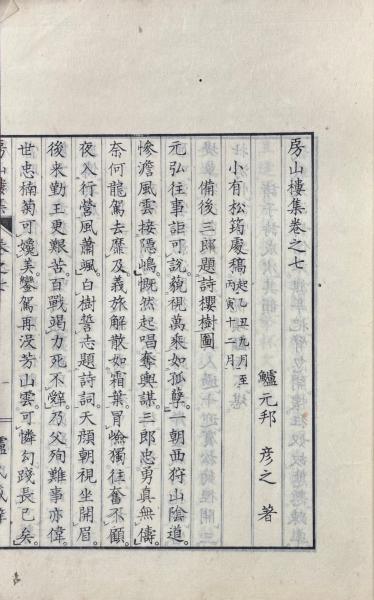 房山樓集卷之七
鱸元邦 彦之 著
小有松筠處稿 起乙丑九月至丙寅十二月
備後三郎題詩櫻樹圖
元弘往事詎可說。藐視萬乘如孤孽。一朝西狩山陰道。
慘澹風雲接隱嶋。慨然起唱奪輿謀。三郎忠勇真無儔。
奈何龍駕去靡及。義旅解散如霜葉。冒嶮獨往奮不顧。
夜入行營風蕭颯。白樹誓志題詩詞。天顏朝視坐開眉。
後來勤王更艱苦。百戰竭力死不辭。乃父殉難事亦偉。
世忠楠菊可媲美。鑾駕再沒芳山雲。可憐勾踐長已矣。
房山樓集 卷之七